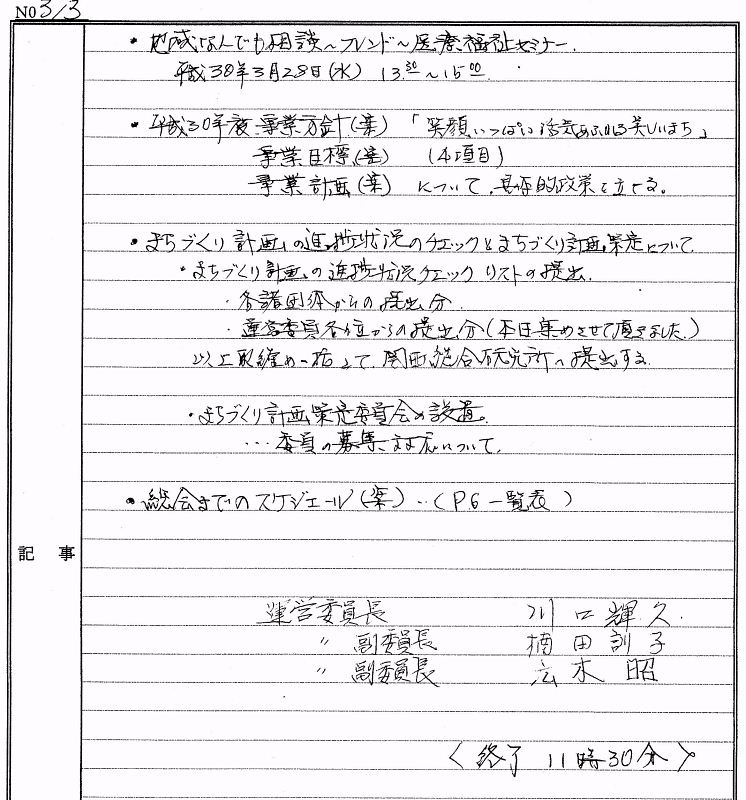 NO 3/3
・地域なんでも相談〜フレンド〜医療福祉セミナー.
平成30年3月28日(水) 13:30〜15:00
・平成30年度 事業方針(案) 「笑顔いっぱい活気あふれる美しいまち」
事業目標(案) (4項目)
事業計画(案) について、具体的政策を立てる。
・まちづくり計画の進捗状況のチェックとまちづくり計画策定について
・まちづくり計画の進捗状況チェックリストの提出.
・各諸団体からの提出分.
・運営委員各位からの提出分(本日集めさせて頂きました.)
以上取纏め一括して、関西総合研究所へ提出する.
・まちづくり計画策定委員会の設置.
・・・委員の募集、対応について.
・総会までのスケジュール(案)・・(P6 一覧表)
記 事
運営委員長 川口輝久.
〃 副委員長 楠田訓子
〃 副委員長 広木 昭
〈終了 11時30分〉